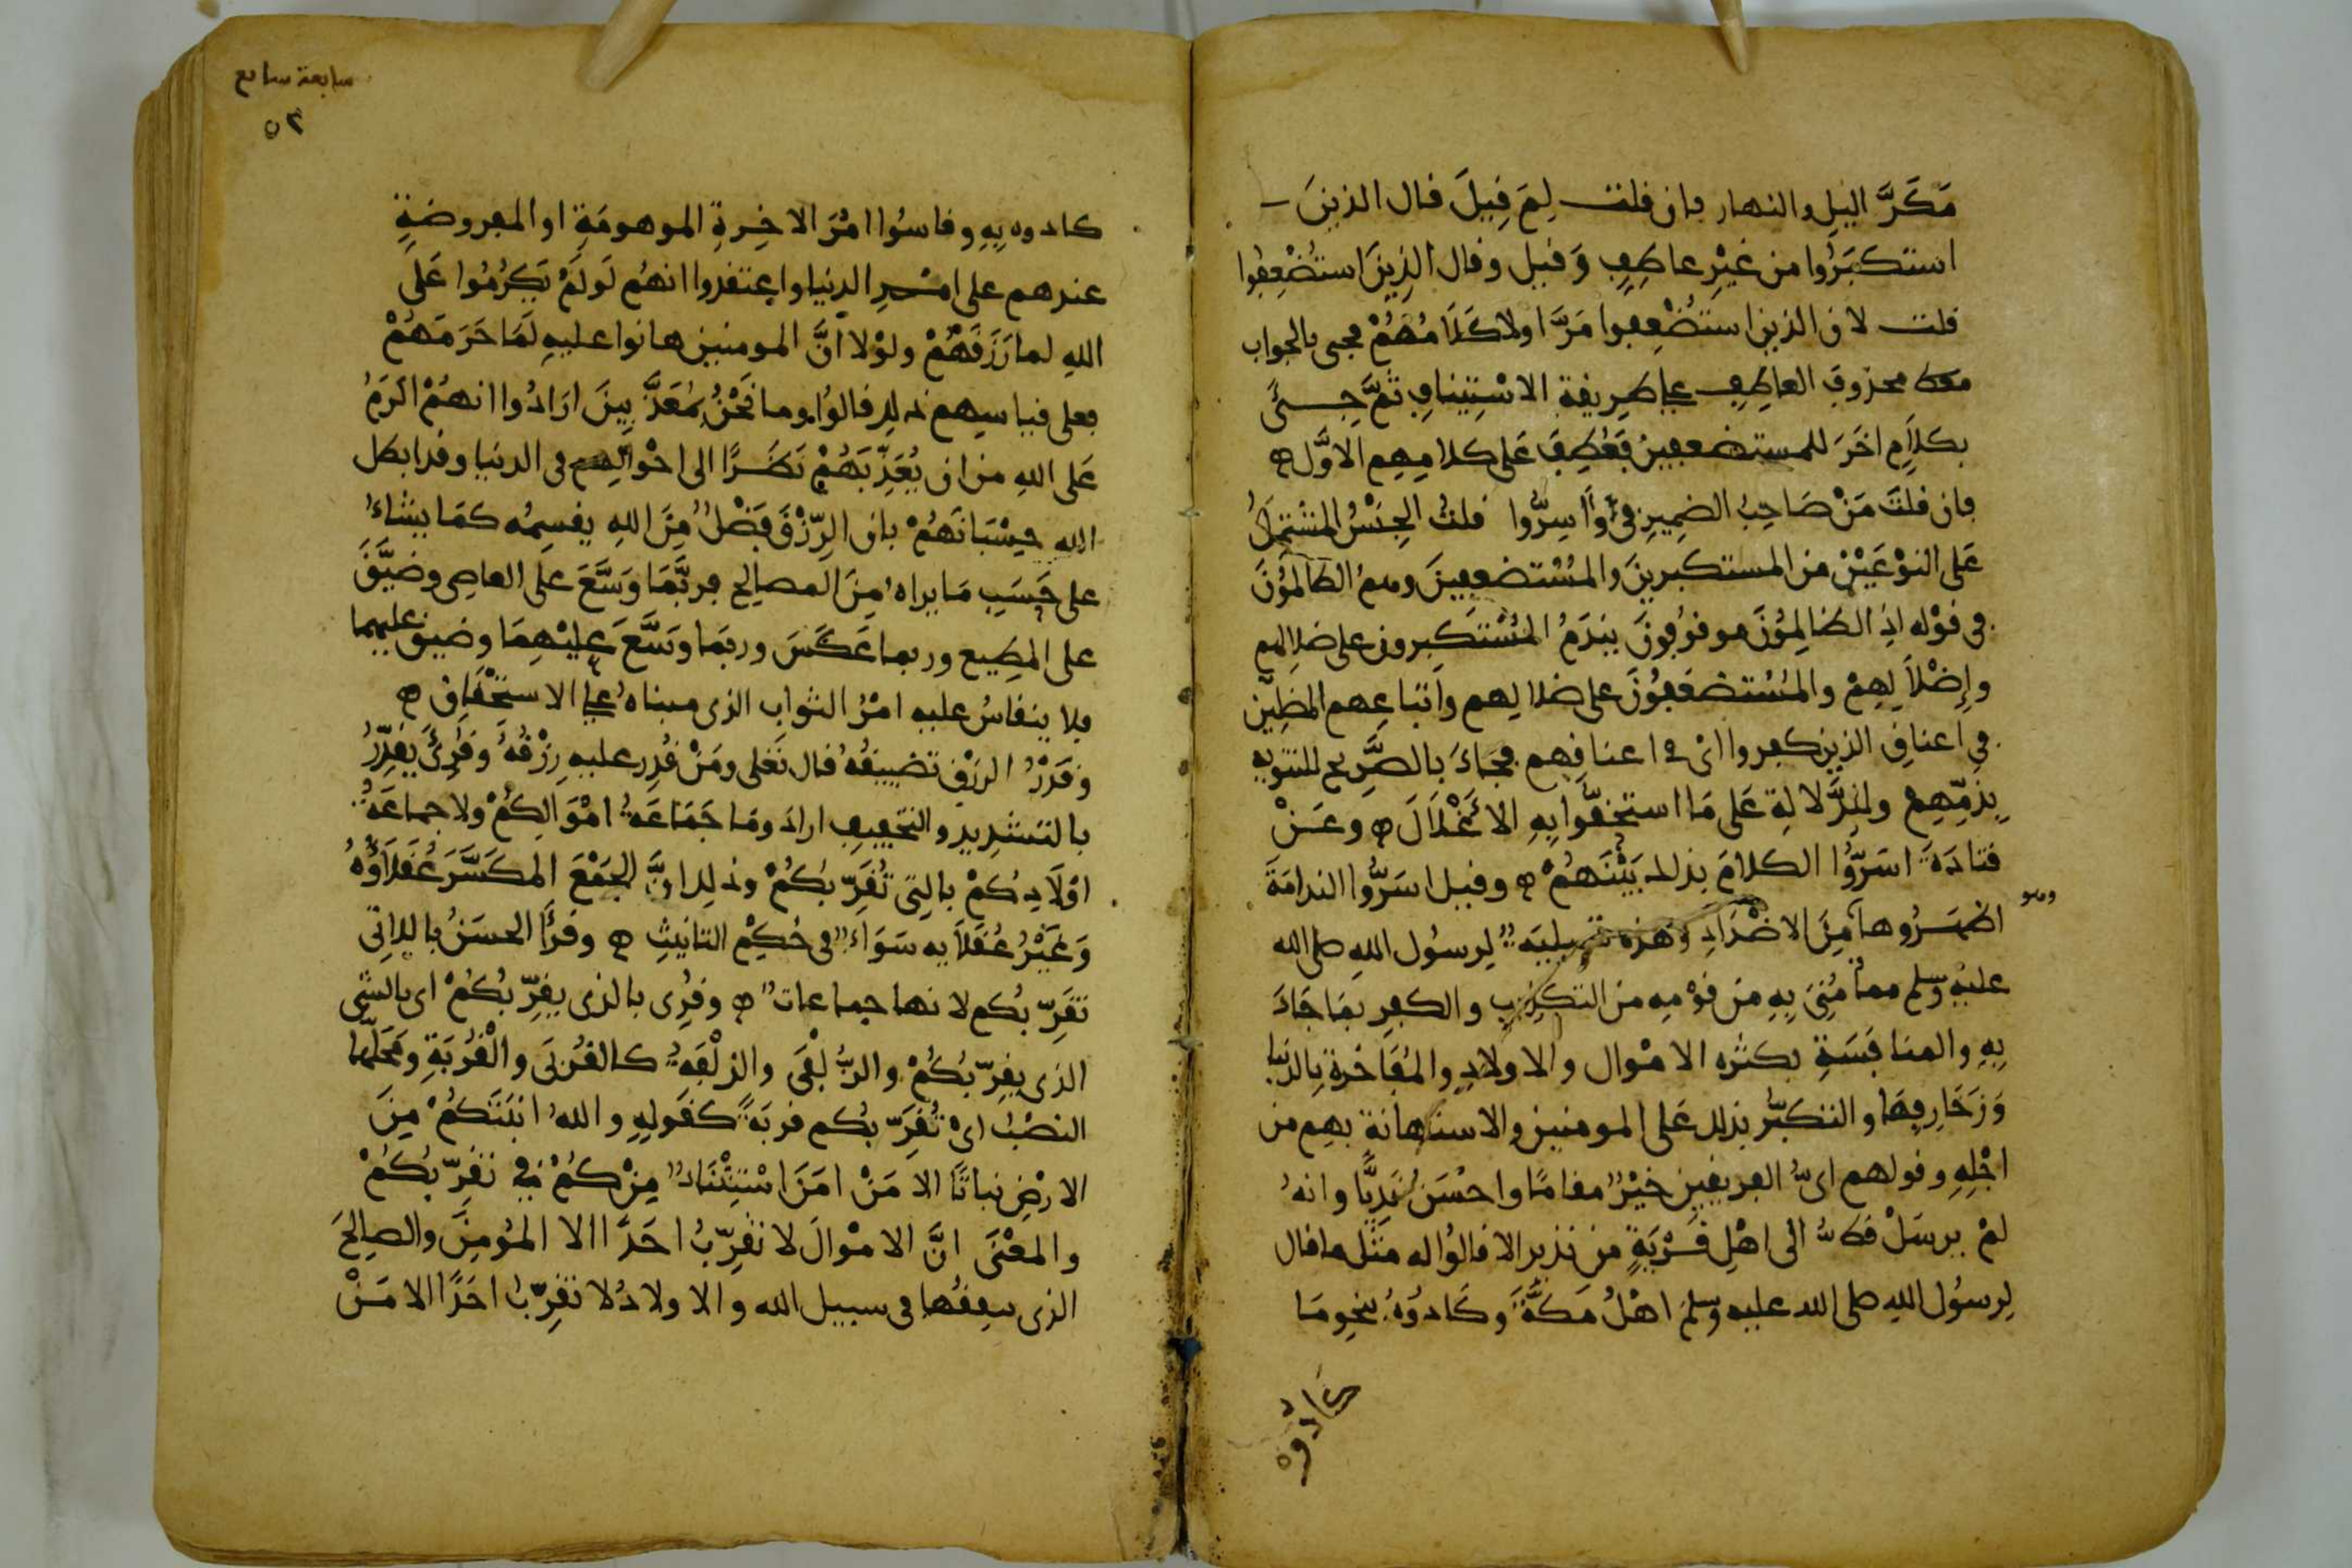 مَكَرَّ اليلِ والنهار فان قلت لِمَ قِيلَ قال الذينَ
استكبَرُوا من غَيْرِ عاطِفٍ وَقيل وقال الذِينَ استُضْعِفُوا
قلت لان الذين استُضْعِفوا مَرَّ اولا كَلَامُهُمْ فجيء بالجواب
محذوفَ العاطِفِ على طرِيقة الاسْتِينافِ ثمَّ جِيءَ
بكلَامٍ اخَرَ للمستضعفينَ فَعُطِفَ عَلى كلامِهِم الاوَّل ۞
فان قلتَ مَنْ صَاحِبُ الضمِيرِ في وَاَسرُّوا قلتُ الجِنْسُ المُشْتَمِلُ
عَلى النوْعَيْنِ من المستكبرينَ والمُسْتضعفِينَ وهمُ الظالمُونَ
في قوْله اذِ الظالِمُونَ موقوُفونَ يندَمُ المُسْتَكبِرون على ضلالِهم
وإِضْلَالِهِمْ والمُسْتضعَفُونَ على ضلالِهم واَتباعِهم المظِلّين
في اعناقِ الذين كفروا اىْ في اعناقِهم فجَاءَ بالصَّرِيح للتنويه
بِذمِّهِمْ ولِلدَّلالةِ عَلى مَا استحقّوا بِهِ الاَغْلَالَ ۞ وعَنْ
قتادَةَ اسَرُّوا الكلامَ بذلك بَيْنَهُمْ ۞ وقيل اسَرُّوا الندامَةَ
وهو
اظهَرُوها مِنَ الاضْدَادِ وَهذه تسلِيَة لِرسُول اللهِ صلى الله
عليْهِ وسلم مما مُنِيَ بِهِ من قوْمِه من التكذِيبِ والكفرِ بمَا جَاءَ
بِهِ والمنافَسَةِ بكثرة الامْوال والاولادِ والمُفَاخَرة بِالدنيا
وَزَخَارِفِهَا والتكبُّر بذلك عَلى المومنين والاستهانةِ بهِم من
اجْلِهِ وقولهم اىُّ الفريقينِ خَيْرٌ مقامًا واحسَنُ نَدِيًّا وانهُ
لمْ يرسَلْ قطُّ الى اهْلِ قَرْيَةٍ من نذير الا قالوُا له مَثل ما قال
لِرسُول اللهِ صلى الله عليه وسلم اهْلُ مَكَّةَ وكَادوُهُ بنحوِ مَا
كَادوُه
سابعة سابع
٥٣
كادوه بِهِ وقاسُوا امْرَ الاخِرةِ الموهومَةِ او المفروضَةِ
عندهم على امْرِ الدنيا واعتقدوا انهُم لَو لَمْ يَكرُمُوا عَلَى
اللهِ لما رَزَقَهُمْ ولوْلا اَنَّ المومنين هانوا عليهِ لَمَا حَرَمَهُمْ
فعلى قياسِهِم ذلك قالوُا وما نَحْنُ بمُعَذَّبِينَ ارَادُوا انهُمْ اكرَمُ
عَلى اللهِ من ان يُعَذِّبَهُمْ نَظَرًا الى احْوالِهم في الدنيا وقد ابطل
الله حِسْبَانَهُمْ بان الرِّزْقَ فَضْلٌ مِنَ اللهِ يقسِمُه كمَا يشاءُ
على حَسَبِ مَا يراهُ مِنَ المصالِح فربّمَا وَسَّعَ على العاصى وضيَّقَ
على المطِيع وربما عَكَسَ وربمَا وَسَّعَ عليْهِمَا وضيق عليهما
فلا ينقاسُ عليه امْرُ الثواب الذى مبناهُ على الاستحْقاق ۞
وقَدْرُ الرزْق تضييقُهُ قال تعَلى ومَنْ قُدِر عليه رِزْقُهُ وقُرِئَ يقَدِّرُ
بالتشديد والتخفيفِ ارادَ ومَا جَمَاعَةُ امْوَالِكُمْ ولا جماعَةُ
اوْلَادِكُمْ بالتِي تُقَرِّبُكُمْ وذلك اَنَّ الجَمْعَ المكَسَّرَ عُقَلَاؤُهُ
وَغيْرُ عُقَلَايه سَوَاءٌ في حُكْمِ التانيثِ ۞ وقرَأَ الحسَنُ باللاتِي
تقَرِّبُكم لانها جماعات ۞ وقُرِى بالذى يقرِّبُكُمْ اى بالشَّي
الذى يقرِّبُكُمْ والزُّلْفَى والزلْفَةُ كالقرْبَى والقُرْبَةِ ومَحَلُّها
النصْبُ اىْ تُقَرِّبُكم قربَةً كقَولِهِ واللهُ انبَتَكُمْ مِنَ
الارْضِ نباتًا الا مَنْ امَنَ استِثْنَاءٌ مِنْ كُمْ في تقرِّبُكُمْ
والمعْنَى انَّ الامْوالَ لا تقرِّبُ احَدًا الا المُومِنَ والصالِحَ
الذى ينفِقُها في سبيل الله والاولادُ لا تقرِّبُ احَدًا الا مَنْ